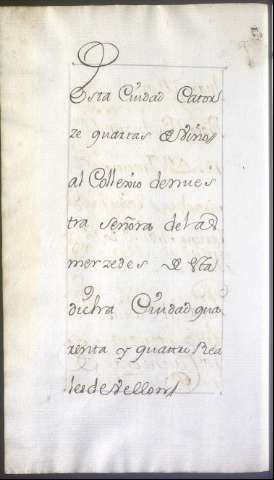 esta Ciudad Cator
ze quartas de vino
al Collexio de nues
tra señora de las
merzedes de esta
dicha Ciudad qua
renta y quattro Rea
les de vellon